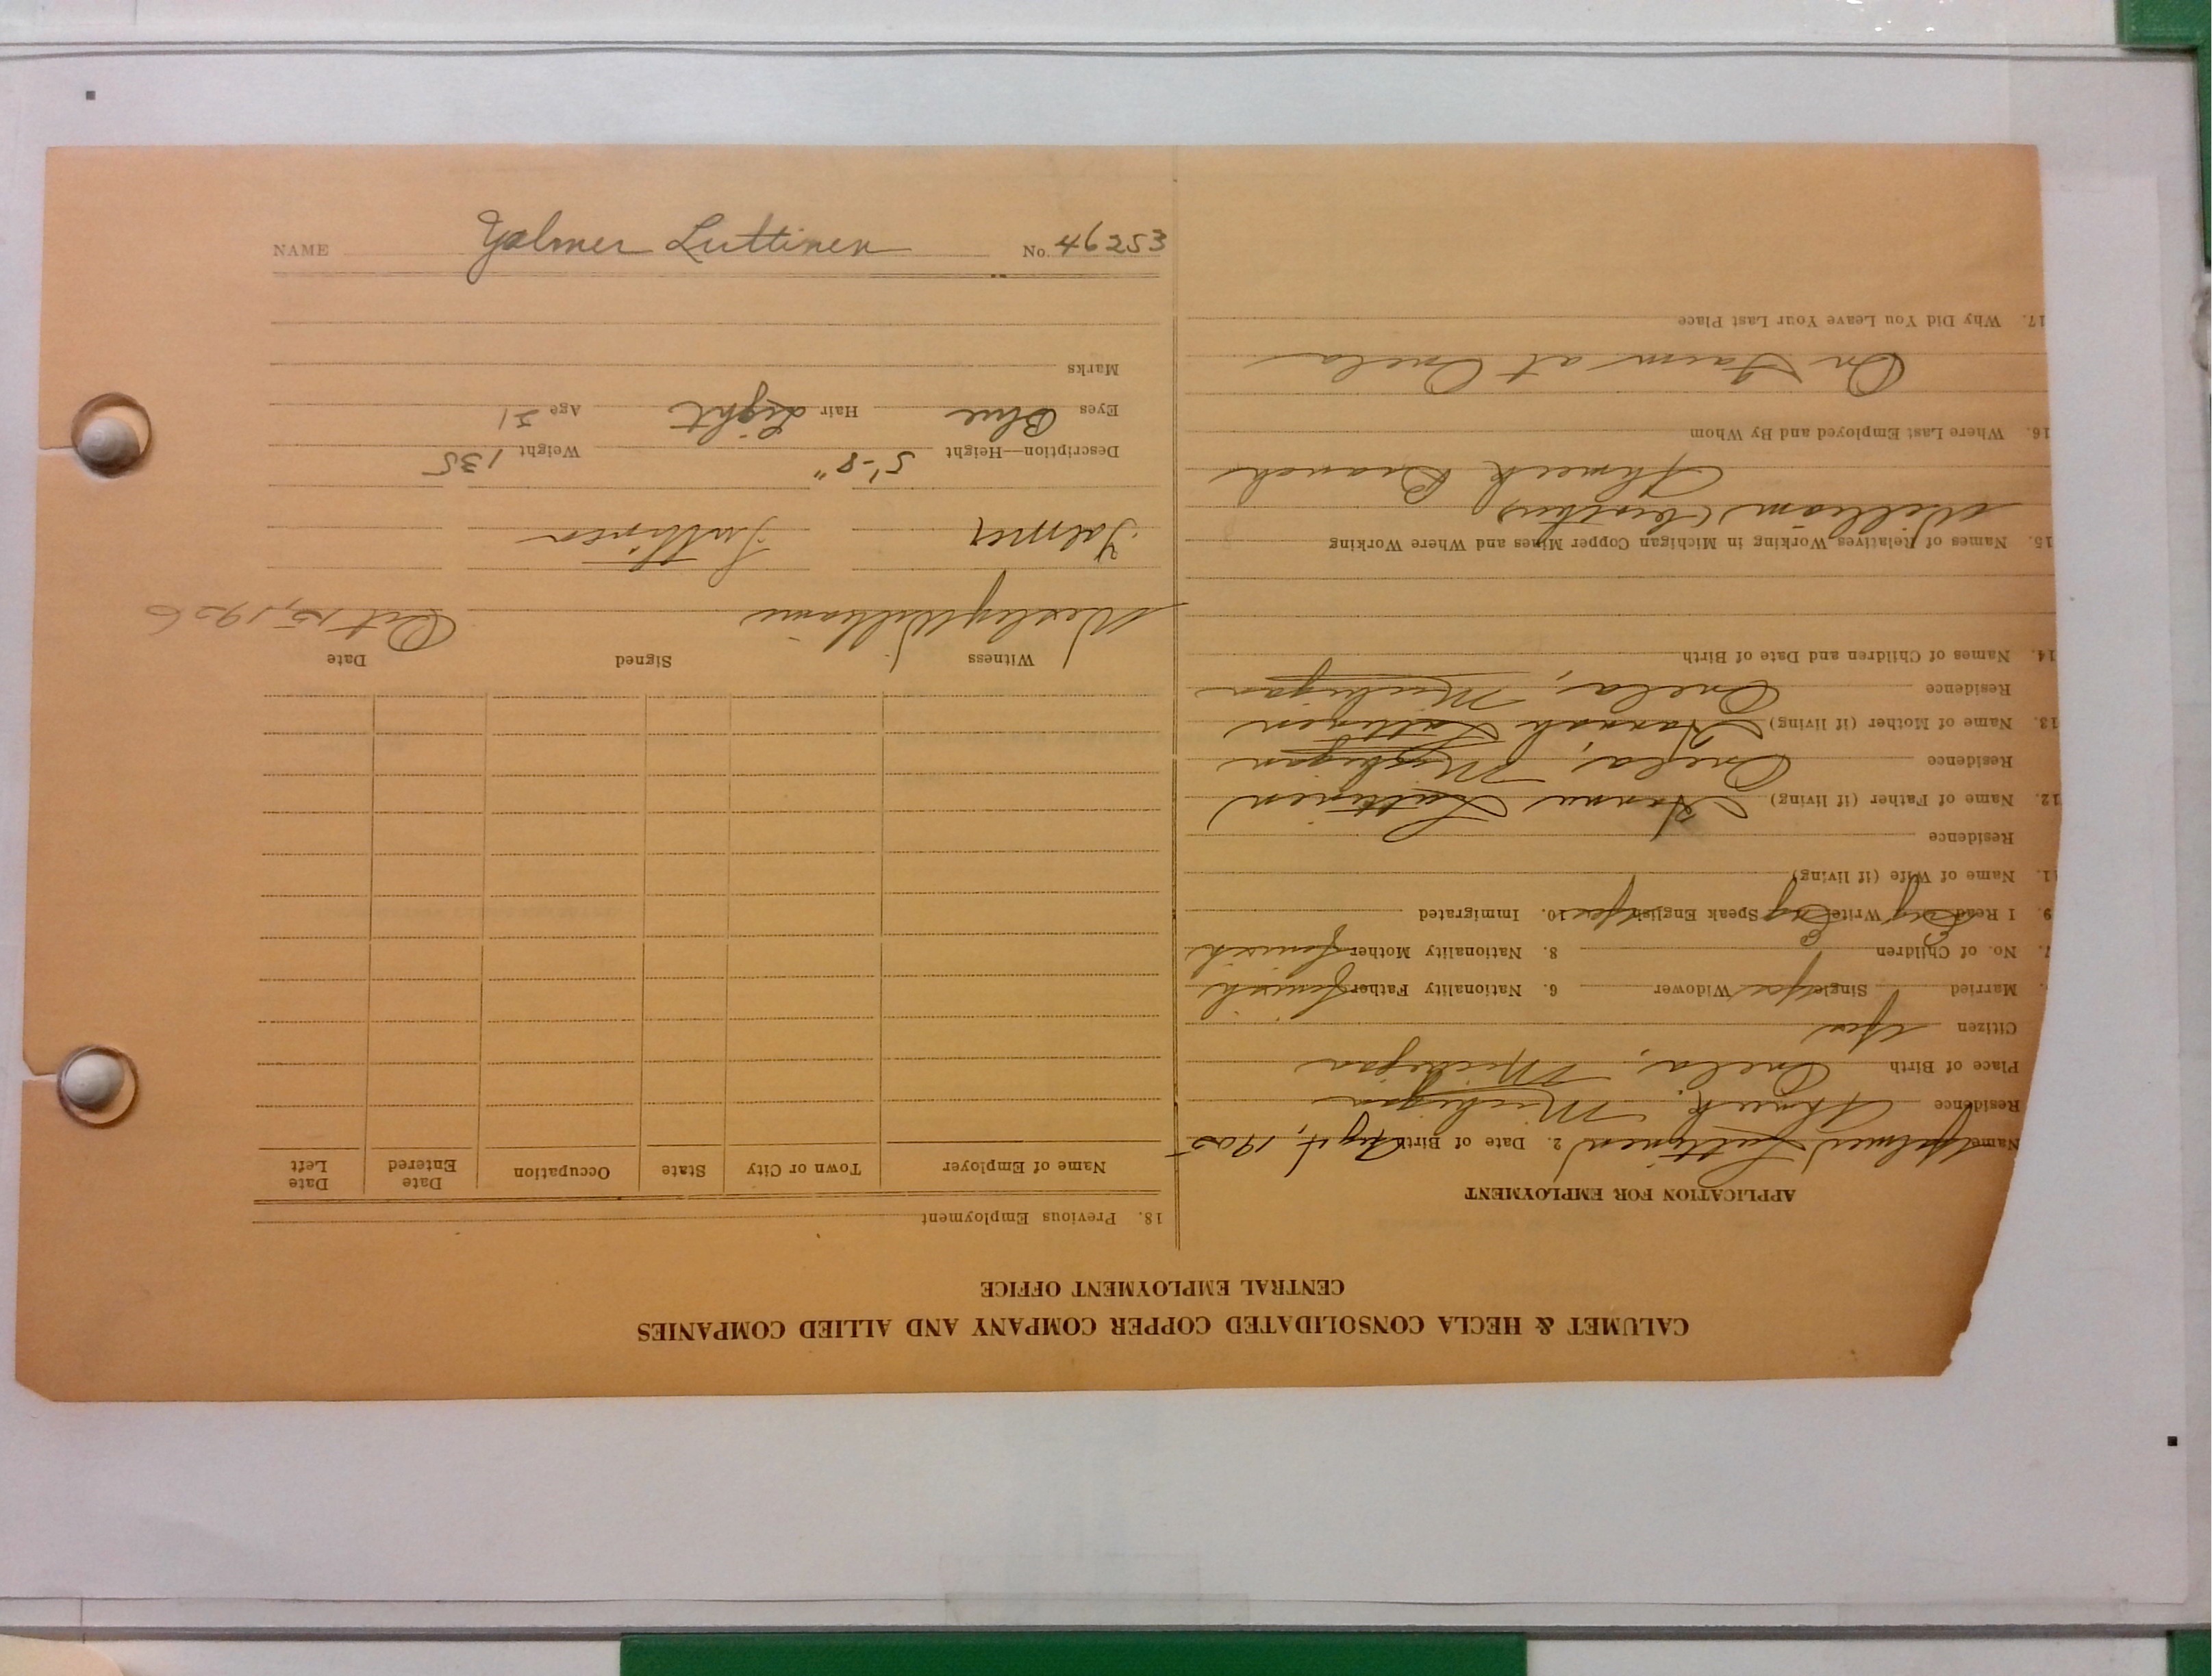 NAME Yalmer Luttinen No. 46253
CALUMET & HECLA CONSOLIDATED COPPER COMPANY AND ALLIED COMPANIES
CENTRAL EMPLOYMENT OFFICE
APPLICATION FOR EMPLOYMENT
Name Yalmer Luttinen 2. Date of Birth Aug 1, 1905
Residence Ahmeek, Michigan
Place of Birth Onela, Michigan
Citizen Yes
Married Single Yes Widower 6. Nationality Father Finnish
7. No. of Children 8. Nationality Mother Finnish
9. I Read Eng Write Eng Speak English Yes 10. Immigrated
11. Name of Wife (if living)
Residence
12. Name of Father (if living) Luttinen
Residence Onela, Michigan
13. Name of Mother (if living) Hannah Luttinen
Residence Onela, Michigan
14. Names of Children and Date of Birth
15. Names of Relatives Working in Michigan Copper Mines and Where Working
William
Ahmeek Branch
16. Where Last Employed and By Whom
On Farm at Onela
17. Why Did You Leave Your Last Place
18. Previous Employment
Name of Employer Town or City State Occupation Date Entered Date Left
Witness Signed Date
Wesley Williams Oct 15, 1926
Yalmer Luttinen
Description—Height 5'-8" Weight 135
Eyes Blue Hair Light Age 21
Marks